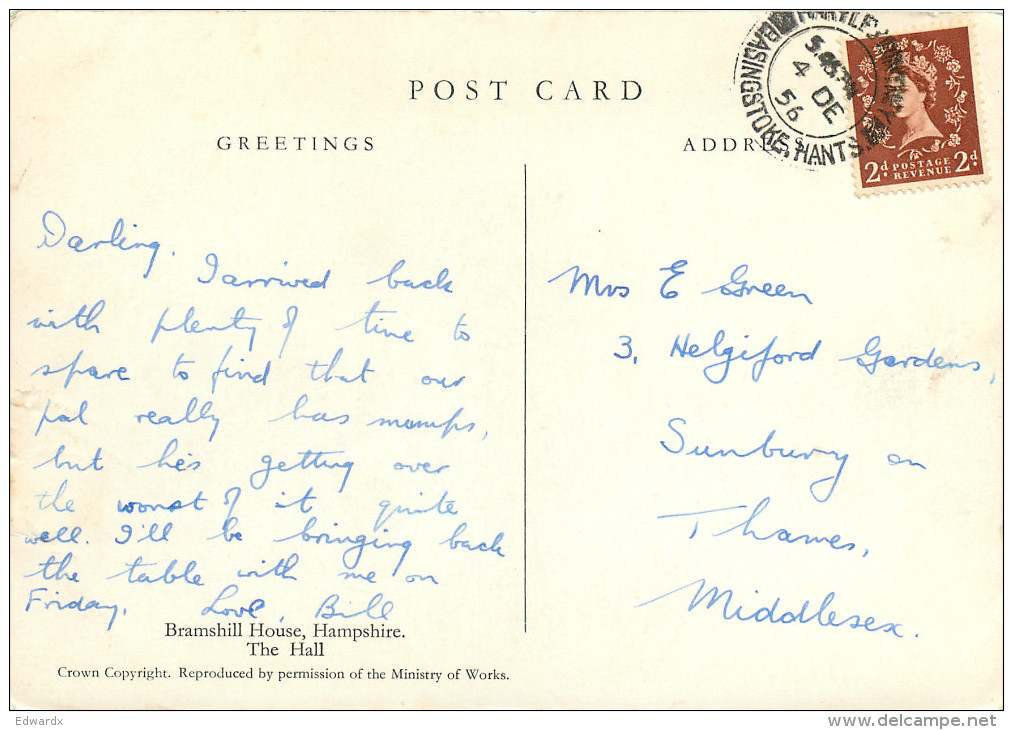 POST CARD
GREETINGS
Darling.
I arrived back
with plenty of time to
spare to find that our
pal really has mumps,
but he's getting over
the worst of it quite
well. I'll be bringing back
the table with me on
Friday. Love, Bill
Bramshill House, Hampshire.
The Hall
Crown Copyright. Reproduced by permission of the Ministry of Works.
ADDRESS
Mrs E Green
3, Helgiford Gardens,
Sunbury on
Thames,
Middlesex.
BASINGSTOKE, HANTS.
4 DE
56
2d POSTAGE 2d
REVENUE
Edwardx
delcampe.net